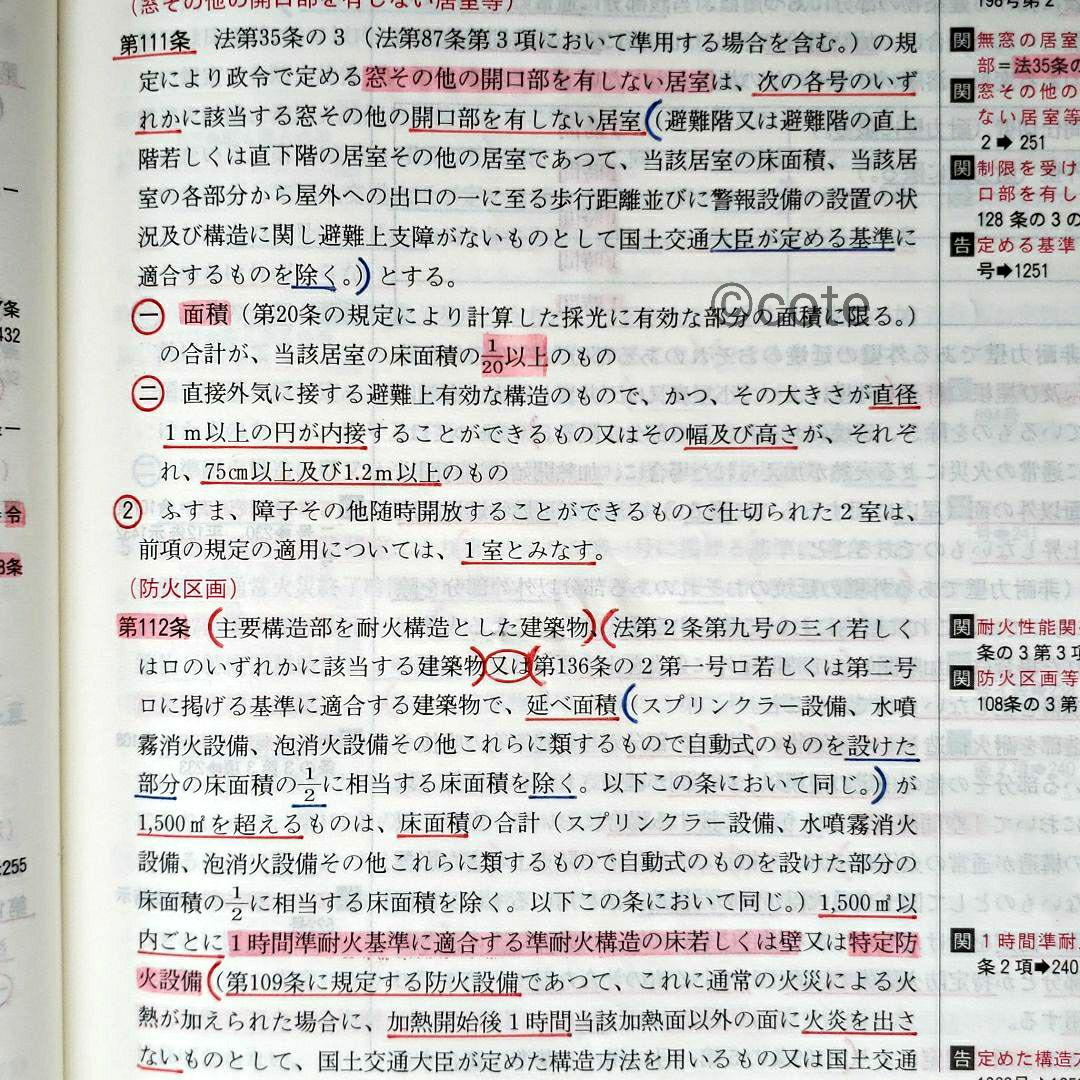 (窓その他の開口部を有しない居室等)
第111条 法第35条の3(法第87条第3項において準用する場合を含む。)の規
定により政令で定める窓その他の開口部を有しない居室は、次の各号のいず
れかに該当する窓その他の開口部を有しない居室(避難階又は避難階の直上
階若しくは直下階の居室その他の居室であつて、当該居室の床面積、当該居
室の各部分から屋外への出口の一に至る歩行距離並びに警報設備の設置の状
況及び構造に関し避難上支障がないものとして国土交通大臣が定める基準に
適合するものを除く。)とする。
一 面積(第20条の規定により計算した採光に有効な部分の面積に限る。)
の合計が、当該居室の床面積の1/20以上のもの
二 直接外気に接する避難上有効な構造のもので、かつ、その大きさが直径
1m以上の円が内接することができるもの又はその幅及び高さが、それぞ
れ、75㎝以上及び1.2m以上のもの
2 ふすま、障子その他随時開放することができるもので仕切られた2室は、
前項の規定の適用については、1室とみなす。
(防火区画)
第112条 主要構造部を耐火構造とした建築物、法第2条第九号の三イ若しく
はロのいずれかに該当する建築物又は第136条の2第一号ロ若しくは第二号
ロに掲げる基準に適合する建築物で、延べ面積(スプリンクラー設備、水噴
霧消火設備、泡消火設備その他これらに類するもので自動式のものを設けた
部分の床面積の1/2に相当する床面積を除く。以下この条において同じ。)が
1,500㎡を超えるものは、床面積の合計(スプリンクラー設備、水噴霧消火
設備、泡消火設備その他これらに類するもので自動式のものを設けた部分の
床面積の1/2に相当する床面積を除く。以下この条において同じ。)1,500㎡以
内ごとに1時間準耐火基準に適合する準耐火構造の床若しくは壁又は特定防
火設備(第109条に規定する防火設備であつて、これに通常の火災による火
熱が加えられた場合に、加熱開始後1時間当該加熱面以外の面に火炎を出さ
ないものとして、国土交通大臣が定めた構造方法を用いるもの又は国土交通
198号第2
関 無窓の居室
部=法35条の
関 窓その他の
ない居室等
2➡251
関 制限を受け
口部を有し
128条の3の
告 定める基準
号➡1251
関 耐火性能関
条の3第3項
関 防火区画等
108条の3第
関 1時間準耐
条2項➡240
告 定めた構造方
©cote
条
432
令
条
255